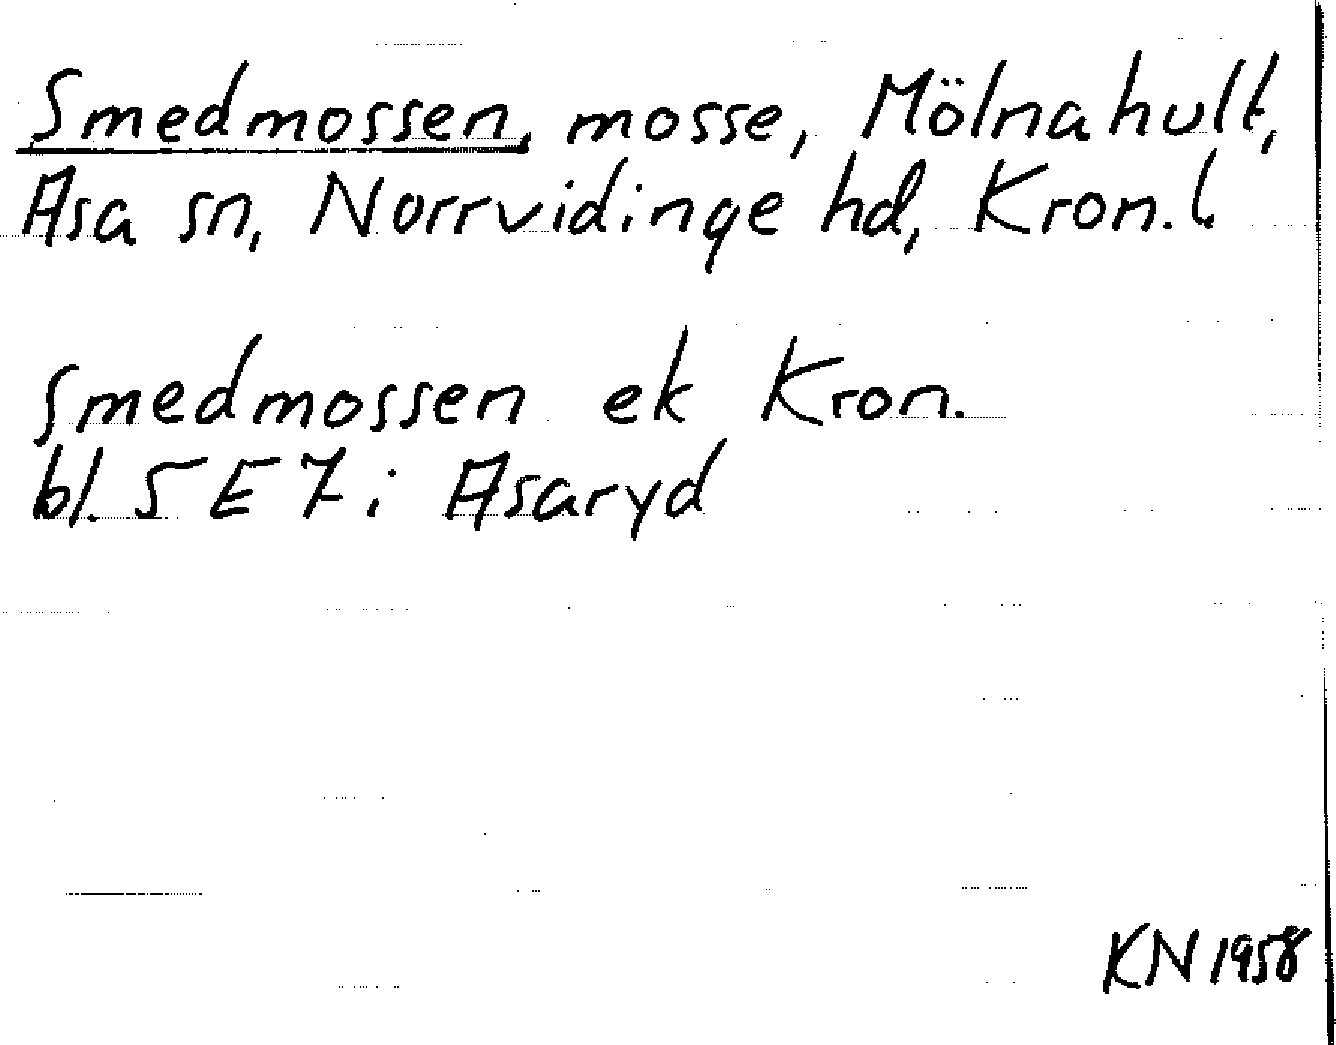 Smedmossen, mosse, Mölnahult,
Asa sn, Norrvidinge hd, Kron. l.
Smedmossen ek Kron.
bl. 5 E 7 i Asaryd
KN 1958